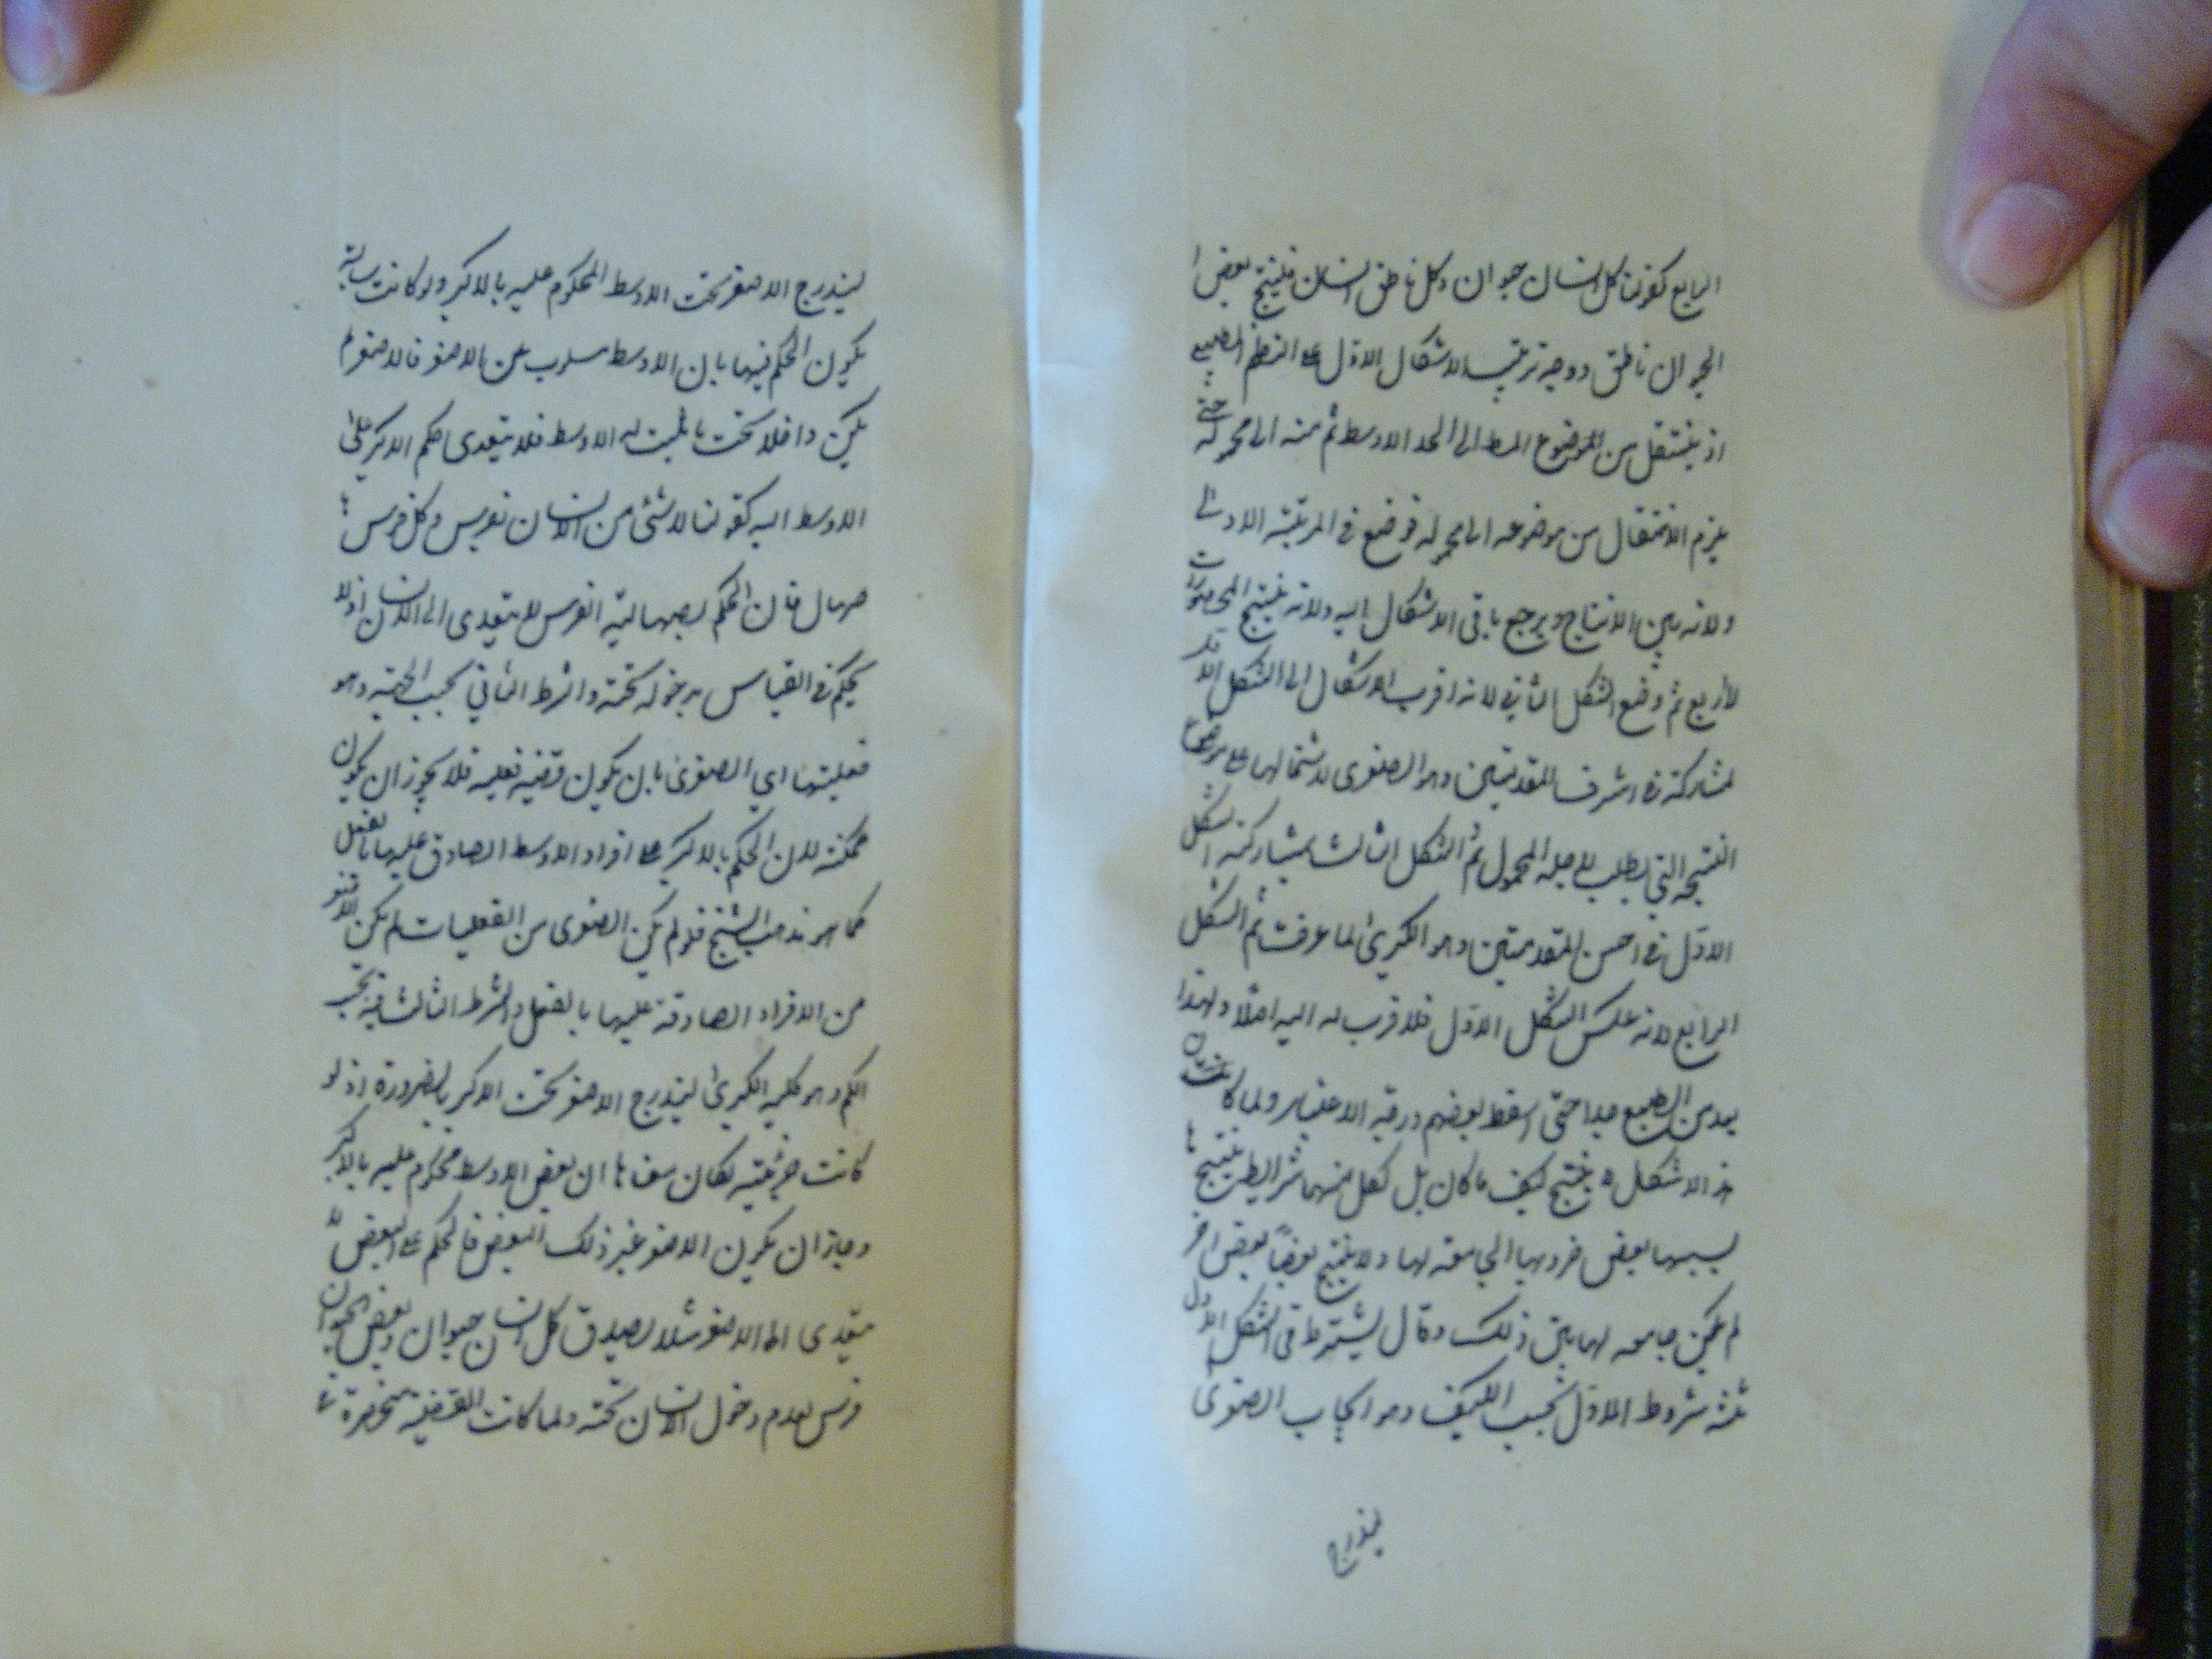 الرابع كقولنا كل انسان حيوان وكل ناطق انسان فينتج بعض ا
لحيوان ناطق ووجه ترتيب الاشكال الاول على النظم الطبيعي
اذ ينتقل من الموضوع المط الى الحد الاوسط ثم منه الى محموله حتى
يلزم الانتقال من موضوعه الى محموله فوضع في المرتبة الاولى
ولانه بين الانتاج ويرجع باقي الاشكال اليه ولانه ينتج المحصورات
لاربع ثم وضع الشكل الثاني لانه اقرب الاشكال الى الشكل الاول
لمشاركته في اشرف المقدمتين وهو الصغرى لاشتمالها على موضوع
النتيجة التي يطلب لاجله المحمول ثم الشكل الثالث لمشاركته الشكل
الاول في احسن المقدمتين وهو الكبرى لما عرفت ثم الشكل
الرابع لانه عكس الشكل الاول فلا قرب له اليه اصلا ولهذا
بعد من الطبع جدا حتى اسقط بعضهم درجة الاعتبار ولما كانت
هذه الاشكال لا ينتج كيف ما كان بل لكل منها شرايط ينتج
بسببها بعض ضروبها الجامعة لها ولا ينتج بعضا بعض اخر
لم يكن جامعه لها بين ذلك وقال يشترط في الشكل الاول
ثلثه شروط الاول بحسب الكيف وهو ايجاب الصغرى
ليندرج
ليندرج الاصغر تحت الاوسط المحكوم عليه بالاكبر ولو كانت سالبة
يكون الحكم فيها بان الاوسط مسلوب عن الاصغر فالاصغر لم
يكن داخلا تحت ما يثبت له الاوسط فلا يتعدى حكم الاكبر على
الاوسط اليه كقولنا لا شئ من الانسان بفرس وكل فرس
صهال فان الحكم بصهالية الفرس لا يتعدى الى الانسان اذ لا
يحكم في القياس بدخوله تحته والشرط الثاني بحسب الجهة وهو
فعليتها اي الصغرى بان يكون قضية فعليه فلا يجوز ان يكون
ممكنه لان الحكم بالاكبر على افراد الاوسط الصادق عليها بالفعل
كما هو مذهب الشيخ فلو لم يكن الصغرى من الفعليات لم يكن الاصغر
من الافراد الصادقة عليها بالفعل والشرط الثالث فيه بحسب
الكم وهو كلية الكبرى ليندرج الاصغر تحت الاكبر بالضرورة اذ لو
كانت جزئية لكان معناها ان بعض الاوسط محكوم عليه بالاكبر
وجاز ان يكون الاصغر غير ذلك البعض فالحكم على البعض لا
يتعدى الى الاصغر مثلا يصدق كل انسان حيوان وبعض الحيوان
فرس لعدم دخول الانسان تحته ولما كانت القضية منحصرة في